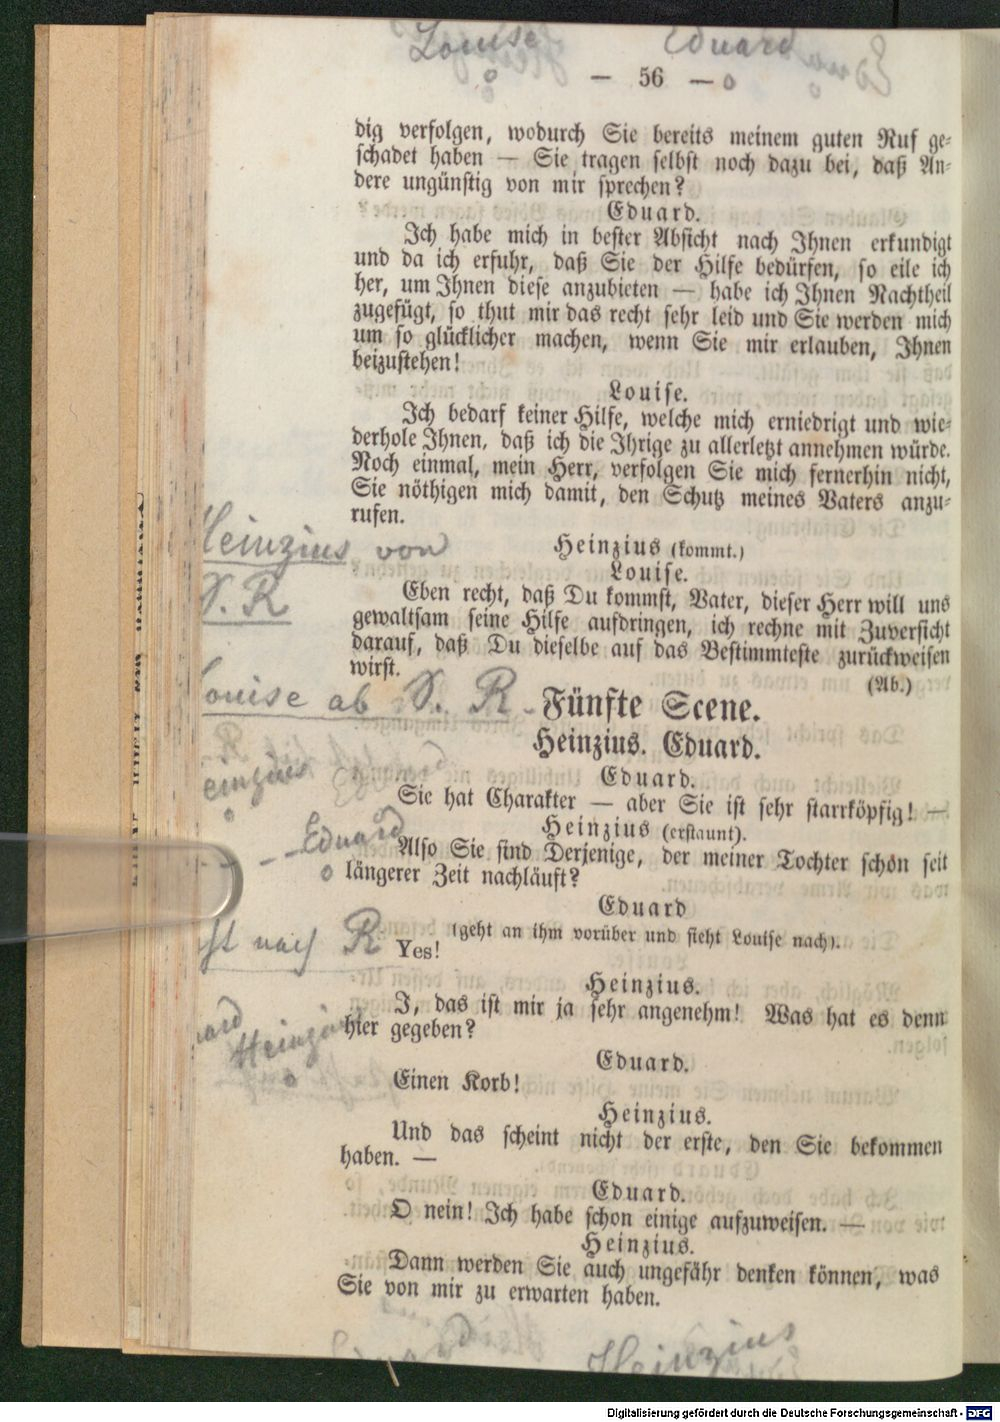 Louise Eduard
— 56 —
dig verfolgen, wodurch Sie bereits meinem guten Ruf ge-
schadet haben — Sie tragen selbst noch dazu bei, daß An-
dere ungünstig von mir sprechen?
Eduard.
Ich habe mich in bester Absicht nach Ihnen erkundigt
und da ich erfuhr, daß Sie der Hilfe bedürfen, so eile ich
her, um Ihnen diese anzubieten — habe ich Ihnen Nachtheil
zugefügt, so thut mir das recht sehr leid und Sie werden mich
um so glücklicher machen, wenn Sie mir erlauben, Ihnen
beizustehen!
Louise.
Ich bedarf keiner Hilfe, welche mich erniedrigt und wie-
derhole Ihnen, daß ich die Ihrige zu allerletzt annehmen würde.
Noch einmal, mein Herr, verfolgen Sie mich fernerhin nicht,
Sie nöthigen mich damit, den Schutz meines Vaters anzu-
rufen.
Heinzius von
S. R
Heinzius (kommt.)
Louise.
Eben recht, daß Du kommst, Vater, dieser Herr will uns
gewaltsam seine Hilfe aufdringen, ich rechne mit Zuversicht
darauf, daß Du dieselbe auf das Bestimmteste zurückweisen
wirst. (Ab.)
Louise ab S. R.
Fünfte Scene.
Heinzius. Eduard.
Eduard.
Sie hat Charakter — aber Sie ist sehr starrköpfig! —
Heinzius (erstaunt).
Eduard
Also Sie sind Derjenige, der meiner Tochter schon seit
längerer Zeit nachläuft?
Eduard
(geht an ihm vorüber und sieht Louise nach).
Yes!
nach R
Heinzius.
I, das ist mir ja sehr angenehm! Was hat es denn
hier gegeben?
Heinzius
Eduard.
Einen Korb!
Heinzius.
Und das scheint nicht der erste, den Sie bekommen
haben. —
Eduard.
O nein! Ich habe schon einige aufzuweisen. —
Heinzius.
Dann werden Sie auch ungefähr denken können, was
Sie von mir zu erwarten haben.
Heinzius
Digitalisierung gefördert durch die Deutsche Forschungsgemeinschaft - DFG